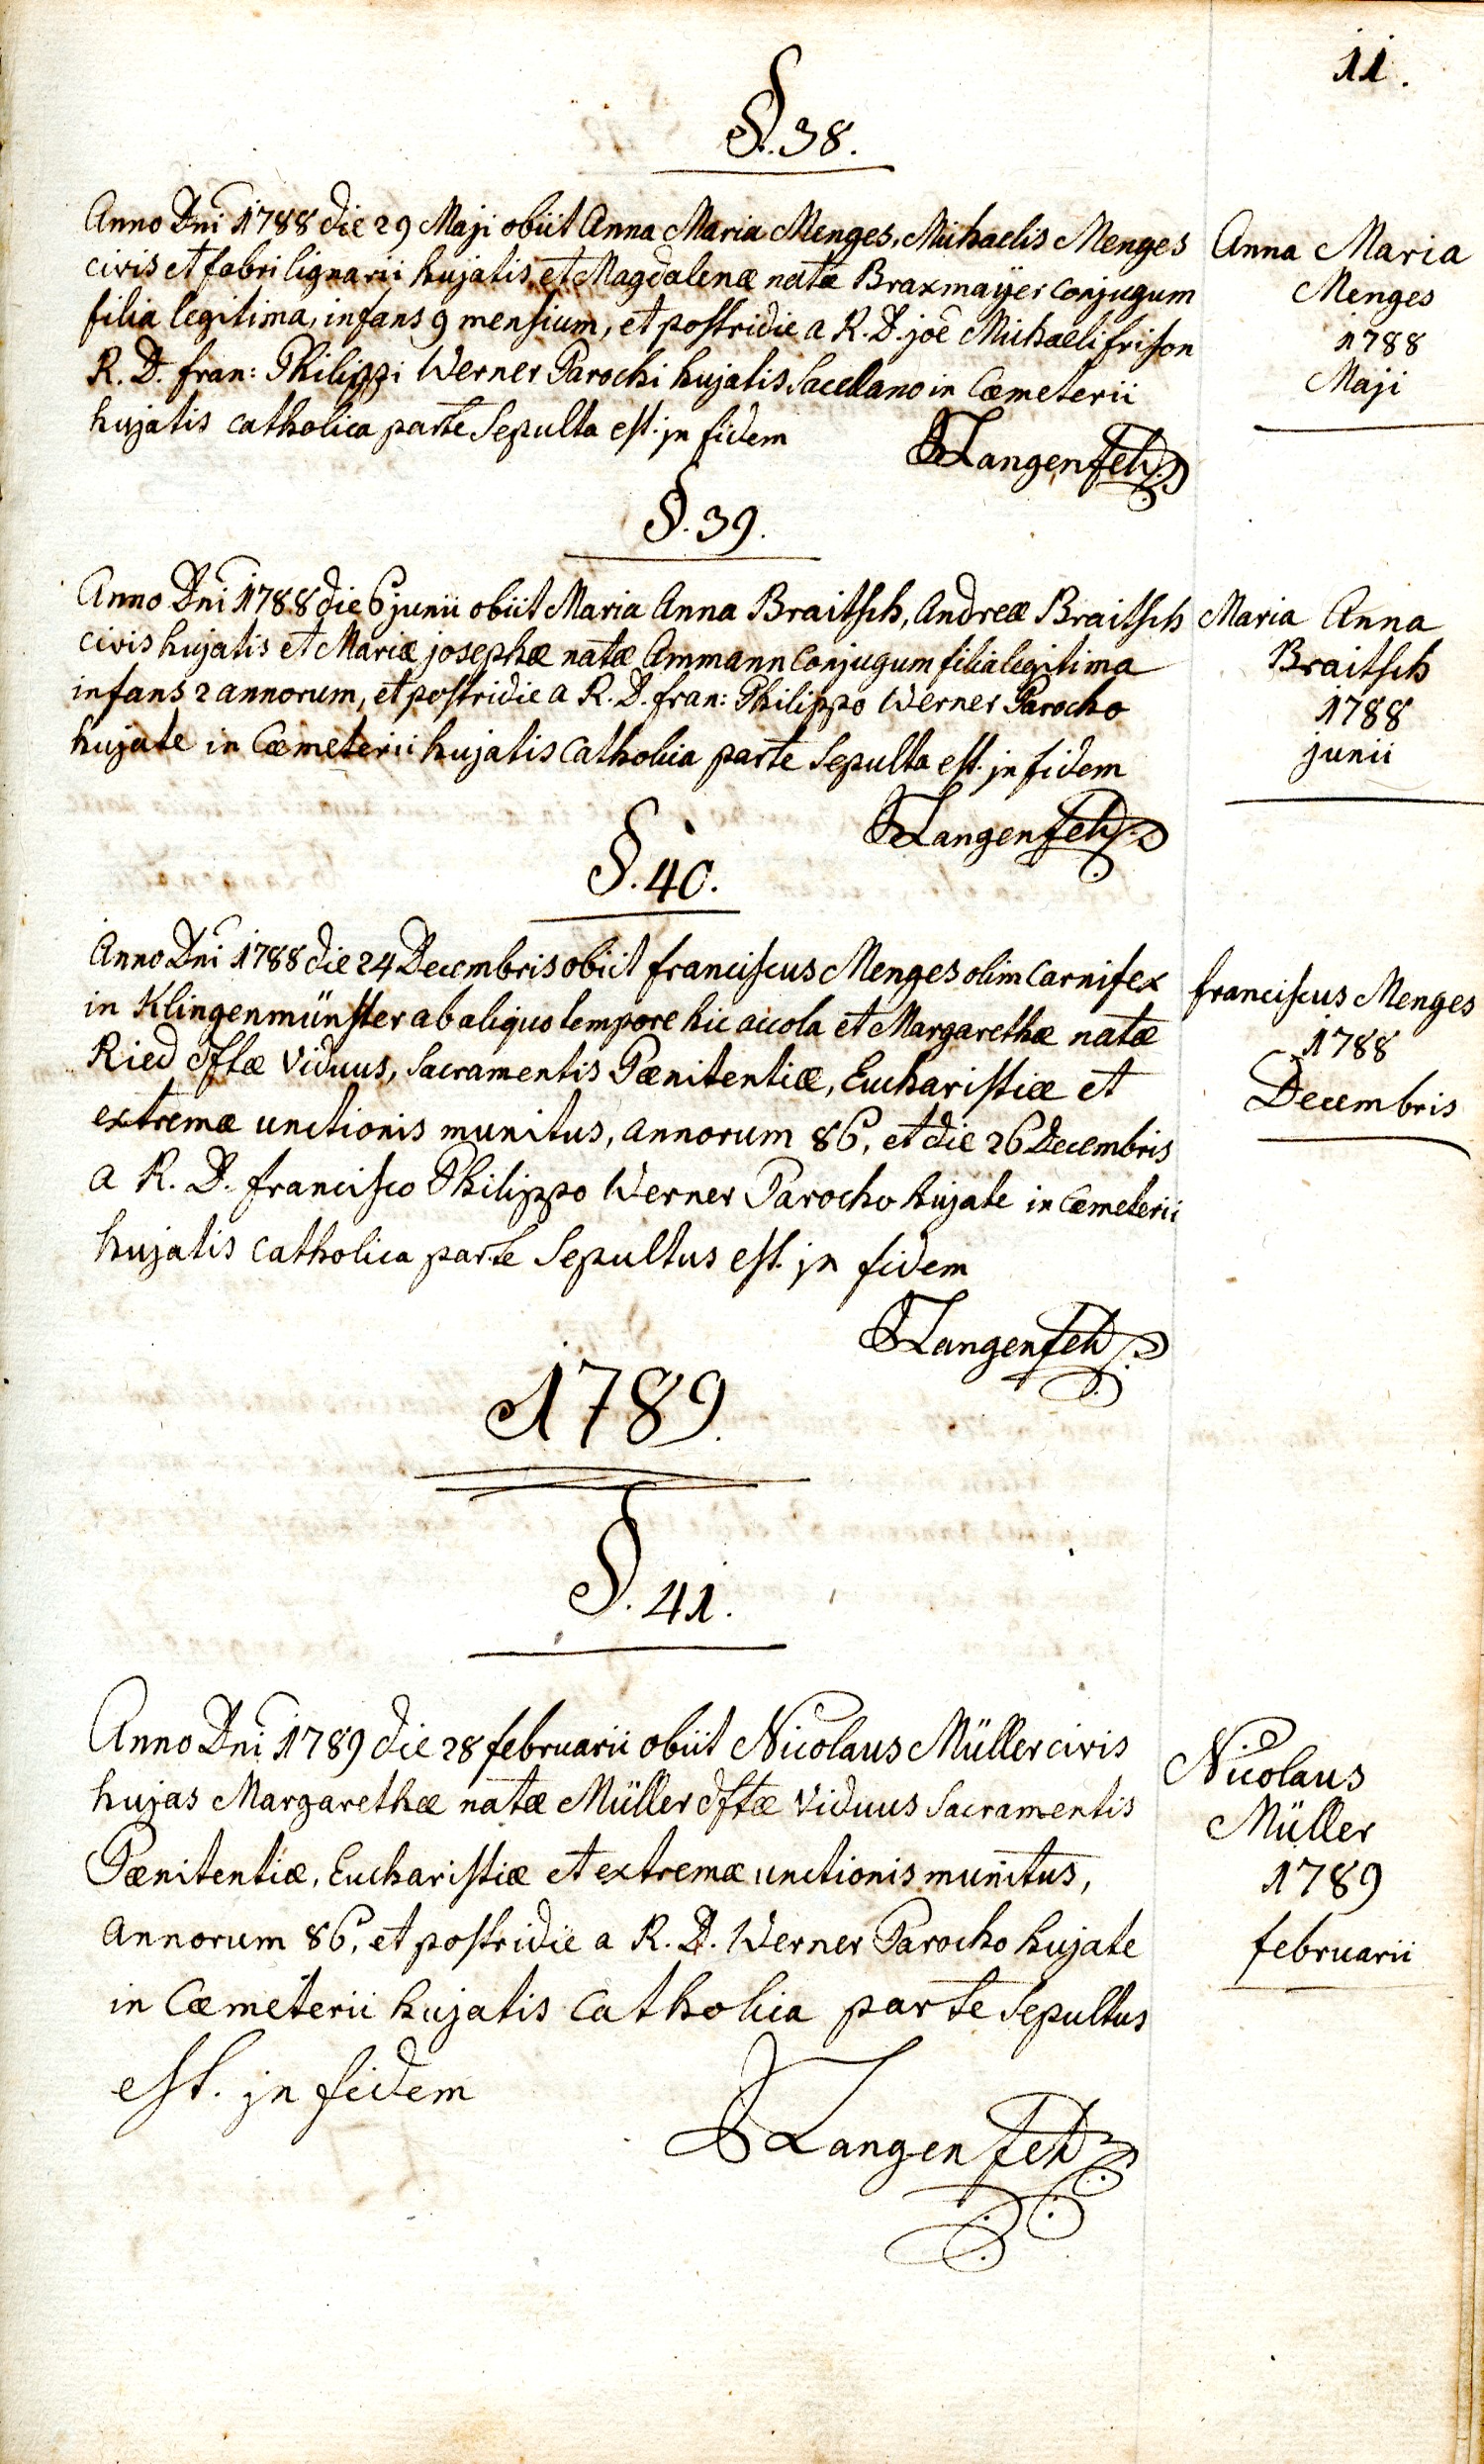 11.
§.38.
Anno Dni 1788 die 29 Maji obiit Anna Maria Menges, Michaelis Menges
civis et fabri lignarii hujatis, et Magdalenæ natæ Braxmaÿer conjugum
filia legitima, infans 9 mensium, et postridie a R. D. joē Michaeli frison
R. D. fran: Philippi Werner Parochi hujatis Sacellano in Cæmeterii
hujatis catholica parte Sepulta est. jn fidem
Anna Maria
Menges
1788
Maji
§.39.
Anno Dni 1788 die 6 junii obiit Maria Anna Braitsch, Andreæ Braitsch
civis hujatis et Mariæ josephæ natæ Ammann Conjugum filia legitima
infans 2 annorum, et postridie a R. D. fran: Philippo Werner Parocho
hujate in Cæmeterii hujatis catholica parte Sepulta est. jn fidem
Maria Anna
Braitsch
1788
junii
§.40.
Anno Dni 1788 die 24 Decembris obiit franciscus Menges olim Carnifex
in Klingenmünster ab aliquo tempore hic accola et Margarethæ natæ
Ried dftæ Viduus, Sacramentis Pænitentiæ, Eucharistiæ et
extremæ unctionis munitus, annorum 86, et die 26 Decembris
a R. D. francisco Philippo Werner Parocho hujate in Cæmeterii
hujatis catholica parte Sepultus est. jn fidem
franciscus Menges
1788
Decembris
1789.
§.41.
Anno Dni 1789 die 28 februarii obiit Nicolaus Müller civis
hujas Margarethæ natæ Müller dftæ Viduus Sacramentis
Pænitentiæ, Eucharistiæ et extremæ unctionis munitus,
annorum 86, et postridie a R. D. Werner Parocho hujate
in Cæmeterii hujatis Catholica parte Sepultus
est. jn fidem
Nicolaus
Müller
1789
februarii